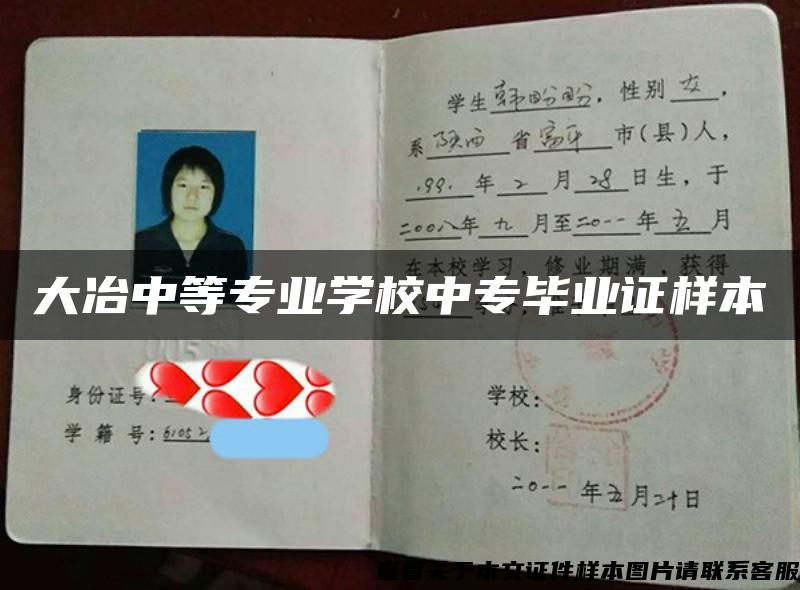 学生韩盼盼，性别女，
系陕西省富平市(县)人，
1991年2月28日生，于
二00八年九月至二0一一年五月
在本校学习，修业期满，获得
大冶中等专业学校中专毕业证样本
身份证号:
学籍号:61052
学校:
校长:
二0一一年五月二十日
查看关于本文证件样本图片请联系客服